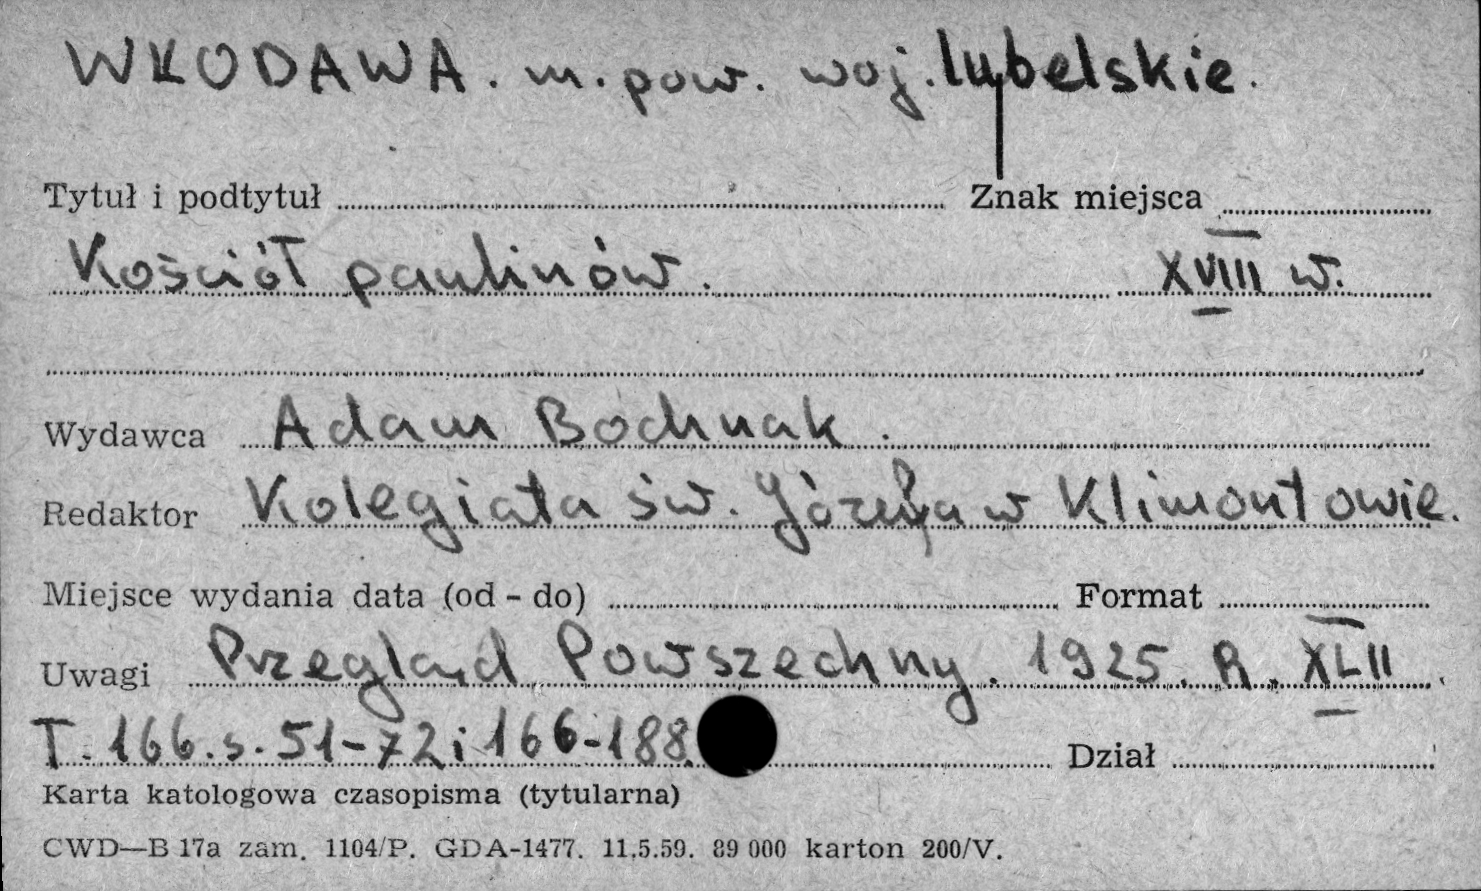 WŁODAWA. m. pow. woj. lubelskie.
Tytuł i podtytuł Znak miejsca
Kościół paulinów. XVIII w.
Wydawca Adam Bochnak.
Redaktor Kolegiata św. Józefa w Klimontowie.
Miejsce wydania data (od - do) Format
Uwagi Przegląd Powszechny. 1925. R. XLII
T. 166. s. 51-72 i 166-188. Dział
Karta katologowa czasopisma (tytularna)
CWD—B 17a zam. 1104/P. GDA-1477. 11.5.59. 89 000 karton 200/V.